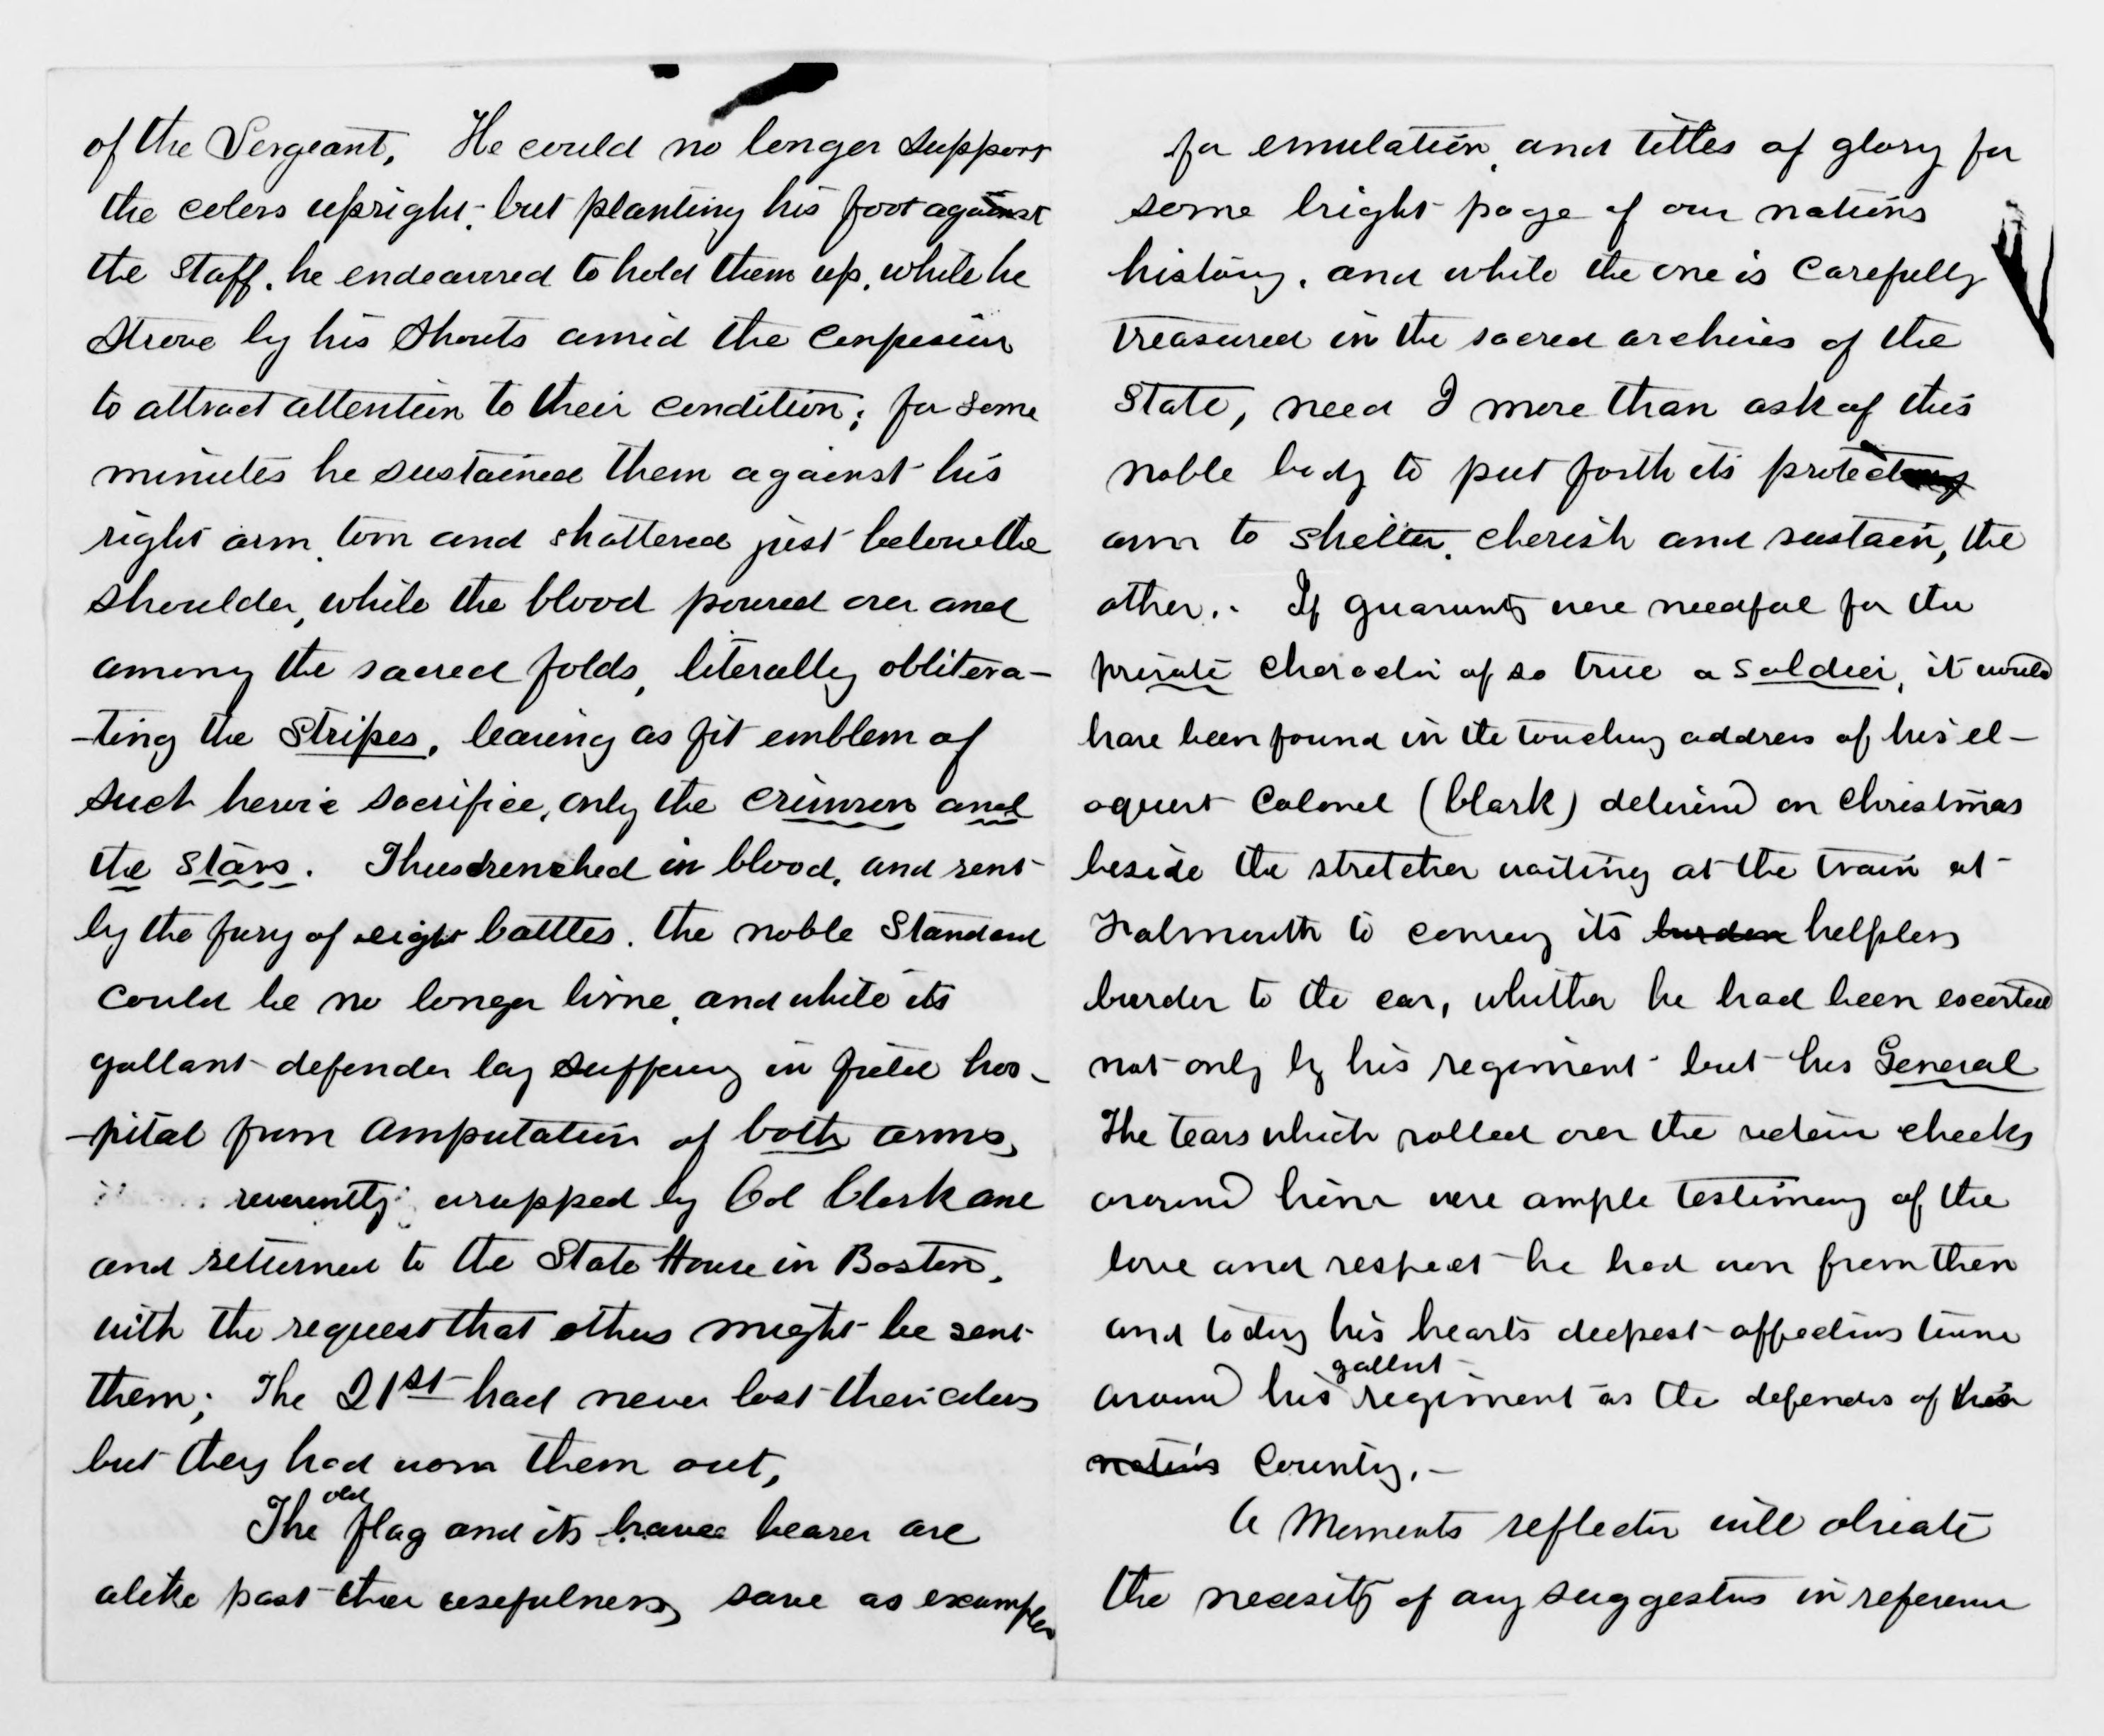 of the Sergeant, He could no longer support
the colors upright, but planting his foot against
the staff, he endeavored to hold them up, while he
strove by his shouts amid the confusion
to attract attention to their condition; for some
minutes he sustained them against his
right arm, torn and shattered just below the
shoulder, while the blood poured over and
among the sacred folds, literally oblitera-
-ting the Stripes, leaving as fit emblem of
such heroic sacrifice, only the crimson and
the stars. Thus drenched in blood, and rent
by the fury of eight battles, the noble Standard
could be no longer borne, and while its
gallant defender lay suffering in field hos-
-pital from amputation of both arms,
reverently wrapped by Col Clark and
and returned to the State House in Boston,
with the request that others might be sent
them; The 21st had never lost their colors
but they had worn them out,
The old flag and its brave bearer are
alike past their usefulness, save as examples
for emulation, and titles of glory for
some bright page of our nations
history, and while the one is carefully
treasured in the sacred archives of the
State, need I more than ask of this
noble body to put forth its protecting
arm to shelter, cherish and sustain, the
other.. If guaranty were needful for the
private character of so true a soldier, it would
have been found in the touching address of his el-
oquent Colonel (Clark) delivered on Christmas
beside the stretcher waiting at the train at
Falmouth to convey its burden helpless
burden to the car, whither he had been escorted
not only by his regiment but his General
The tears which rolled over the veteran cheeks
around him were ample testimony of the
love and respect he had won from them
and today his hearts deepest affections twine
around his gallant regiment as the defenders of their
nation's Country.-
A Moments reflection will obviate
the necessity of any suggestions in reference